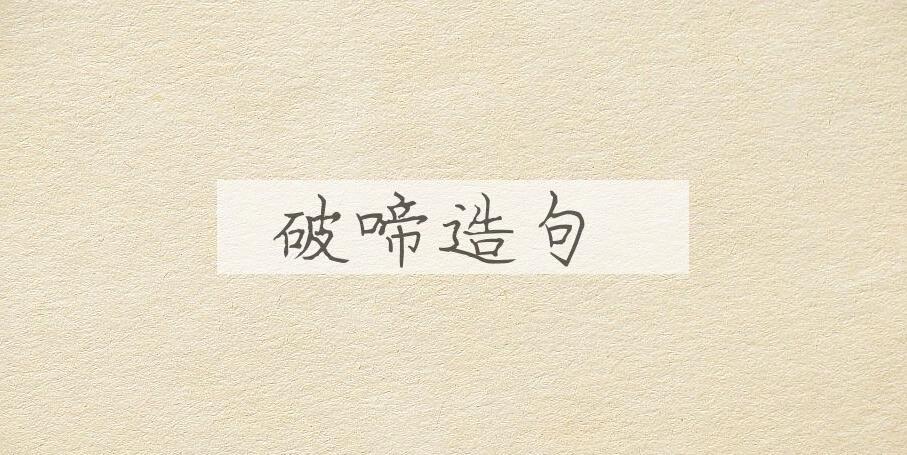 破啼造句